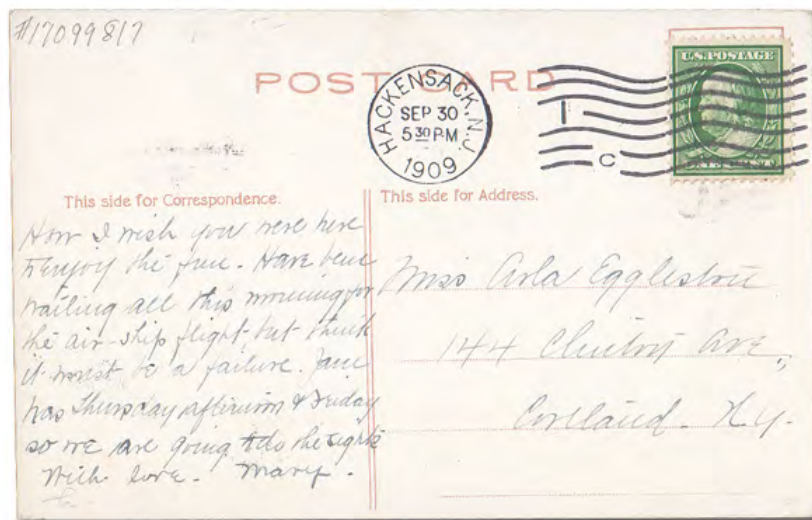 #17099817
POST CARD
HACKENSACK, N.J.
SEP 30
5 30 P.M.
1909
1
C
U.S. POSTAGE
This side for Correspondence.
This side for Address.
How I wish you were here
to enjoy the fun. Have been
waiting all this morning for
the air-ship flight, but think
it must be a failure. Jane
has Thursday afternoon & Friday
so we are going to do the sights
With love. Mary.
Miss Arla Eggleston
144 Clinton Ave.,
Cortland. N.Y.